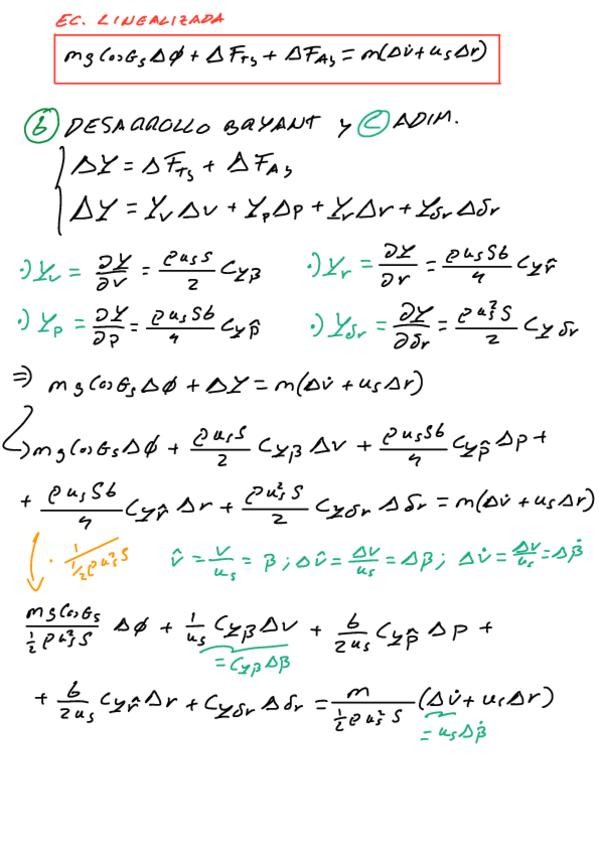 EC. LINEALIZADA
mg cosθs Δϕ + ΔFTs + ΔFAs = m(Δv̇ + us Δr)
b) DESARROLLO BRYANT y c) ADIM.
ΔY = ΔFTs + ΔFAs
ΔY = Yv Δv + Yp Δp + Yr Δr + Yδr Δδr
·) Yv = ∂Y/∂v = ρusS/2 Cyβ ·) Yr = ∂Y/∂r = ρusSb/4 Cyr̂
·) Yp = ∂Y/∂p = ρusSb/4 Cyp̂ ·) Yδr = ∂Y/∂δr = ρus²S/2 Cyδr
⇒ mg cosθs Δϕ + ΔY = m(Δv̇ + us Δr)
↳ mg cosθs Δϕ + ρusS/2 Cyβ Δv + ρusSb/4 Cyp̂ Δp +
+ ρusSb/4 Cyr̂ Δr + ρus²S/2 Cyδr Δδr = m(Δv̇ + us Δr)
· 1/(1/2 ρus²S) v̂ = v/us = β ; Δv̂ = Δv/us = Δβ ; Δv̇ = Δv̇/us = Δβ̇
mg cosθs/(1/2 ρus²S) Δϕ + 1/us Cyβ Δv + b/2us Cyp̂ Δp +
= Cyβ Δβ
+ b/2us Cyr̂ Δr + Cyδr Δδr = m/(1/2 ρus²S) (Δv̇ + us Δr)
= us Δβ̇